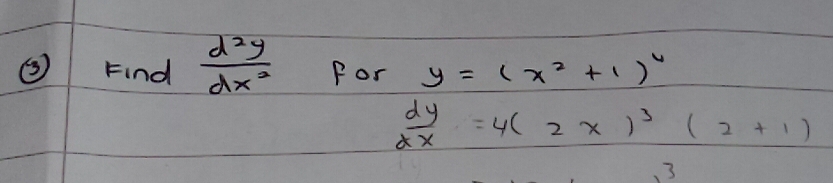 ③ Find d²y/dx² for y = (x² + 1)⁴
dy/dx = 4( 2x )³ ( 2 + 1 )
3